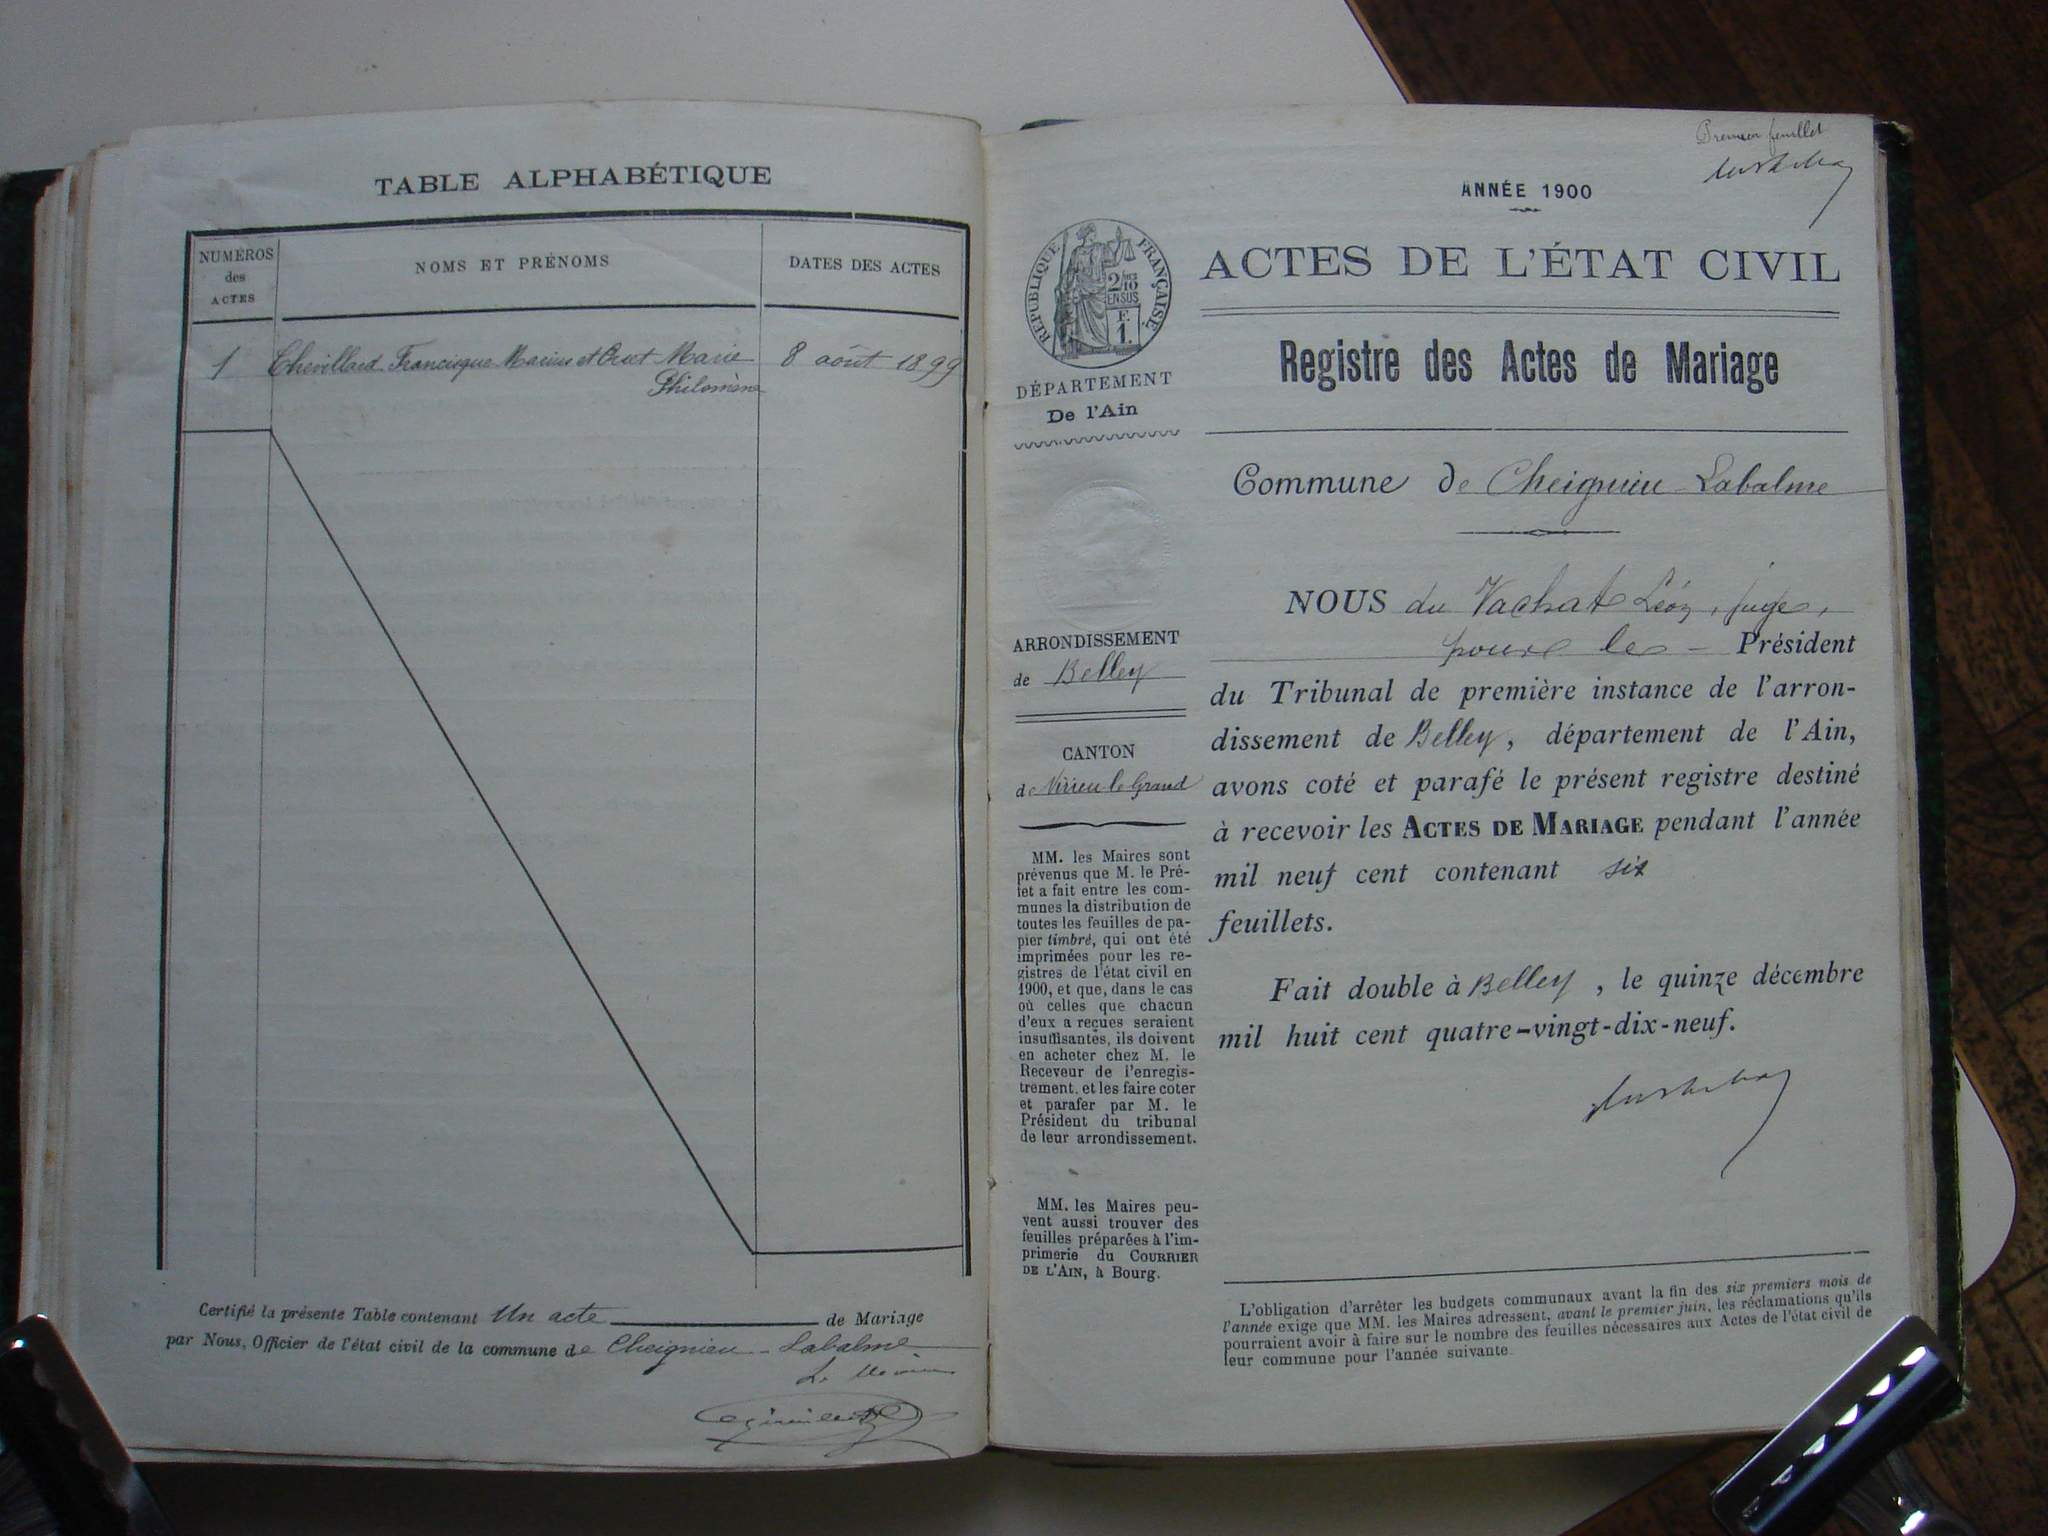 TABLE ALPHABÉTIQUE
NUMÉROS
des
ACTES
NOMS ET PRÉNOMS
DATES DES ACTES
1 Chevillard Francisque Marius et Marie
Philomène
8 août 1899
Certifié la présente Table contenant Un acte de Mariage
par Nous, Officier de l'état civil de la commune de Cheignieu-Labalme
Le Maire
Premier feuillet
ANNÉE 1900
RÉPUBLIQUE FRANÇAISE
2/10
EN SUS
F.
1.
DÉPARTEMENT
De l'Ain
ARRONDISSEMENT
de Belley
CANTON
de Virieu-le-Grand
MM. les Maires sont
prévenus que M. le Pré-
fet a fait entre les com-
munes la distribution de
toutes les feuilles de pa-
pier timbré, qui ont été
imprimées pour les re-
gistres de l'état civil en
1900, et que, dans le cas
où celles que chacun
d'eux a reçues seraient
insuffisantes, ils doivent
en acheter chez M. le
Receveur de l'enregis-
trement, et les faire coter
et parafer par M. le
Président du tribunal
de leur arrondissement.
MM. les Maires peu-
vent aussi trouver des
feuilles préparées à l'im-
primerie du COURRIER
DE L'AIN, à Bourg.
ACTES DE L'ÉTAT CIVIL
Registre des Actes de Mariage
Commune de Cheignieu-Labalme
NOUS du Vachat Léon, juge,
pour le Président
du Tribunal de première instance de l'arron-
dissement de Belley, département de l'Ain,
avons coté et parafé le présent registre destiné
à recevoir les ACTES DE MARIAGE pendant l'année
mil neuf cent contenant six
feuillets.
Fait double à Belley, le quinze décembre
mil huit cent quatre-vingt-dix-neuf.
L'obligation d'arrêter les budgets communaux avant la fin des six premiers mois de
l'année exige que MM. les Maires adressent, avant le premier juin, les réclamations qu'ils
pourraient avoir à faire sur le nombre des feuilles nécessaires aux Actes de l'état civil de
leur commune pour l'année suivante.